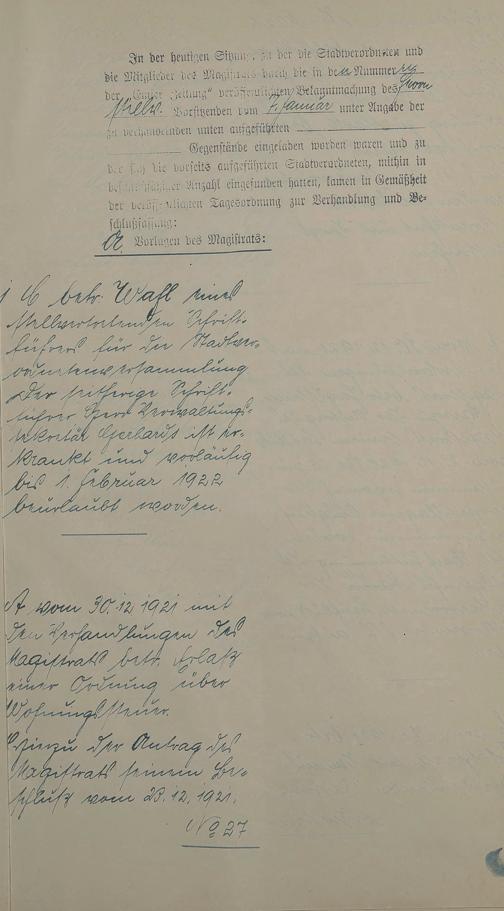 In der heutigen Sitzung zu der die Stadtverordneten und
die Mitglieder des Magistrats durch die in der Nummer
der Zeitung" veröffentlichten Bekanntmachung des
Stellv. Vorsitzenden vom 7. Januar unter Angabe der
zu verhandelnden unten aufgeführten
Gegenstände eingeladen worden waren und zu
der sich die vorseits aufgeführten Stadtverordneten, mithin in
beschlußfähiger Anzahl eingefunden hatten, kamen in Gemäßheit
der veröffentlichten Tagesordnung zur Verhandlung und Be-
schlußfassung:
A. Vorlagen des Magistrats:
betr. Wahl eines
stellvertretenden Schrift-
führers für die Stadtver-
ordnetenversammlung
Der seitherige Schrift-
führer Herr Verwaltungs-
sekretär Gerhards ist er-
krankt und vorläufig
bis 1. Februar 1922
beurlaubt worden.
vom 30.12.1921 mit
den Verhandlungen des
Magistrats betr. Erlaß
einer Ordnung über
Wohnungssteuer.
Hierzu der Antrag des
Magistrats seinem Be-
schluß vom 23.12.1921.
No 27